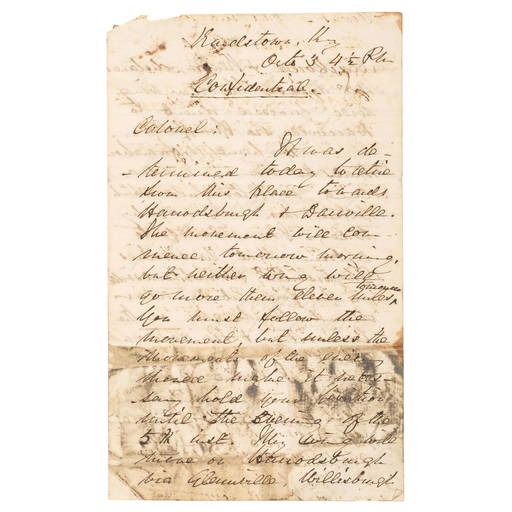 Bardstown, Ky
Octo 3 4½ Pm
Confidential.
Colonel:
It was de-
-termined today to retire
from this place towards
Harrodsburgh & Danville.
The movement will com-
mence tomorrow morning,
but neither wing will
go more than eleven miles tomorrow
You must follow the
movement, but unless the
movements of the enemy
should make it neces-
sary hold your position
until the evening of the
5th inst. My wing will
move on Harrodsburgh
via Glennville, Willisburgh